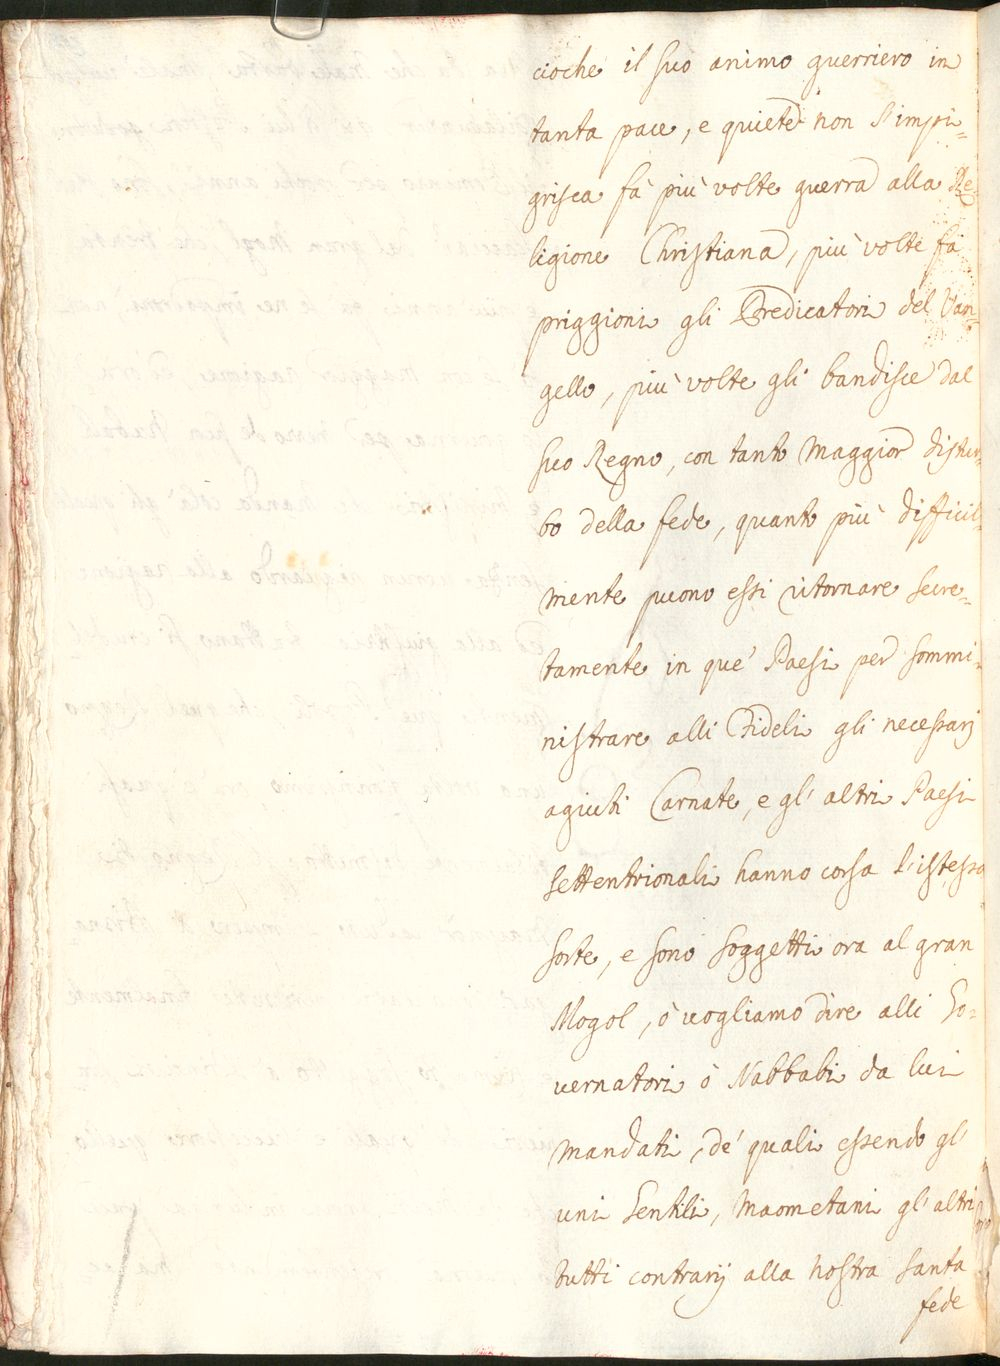 cioche il suo animo guerriero in
tanta pace, e quiete non s'impi=
grisca fà più volte guerra alla Re=
ligione Christiana, più volte fa
priggioni gli Predicatori del Van=
gello, più volte gli bandisce dal
suo Regno, con tanto maggior distur=
bo della fede, quanto più difficil=
mente puono essi ritornare secre=
tamente in que' Paesi per sommi=
nistrare alli Fideli gli necessarj
agiuti Carnate, e gl'altri Paesi
settentrionali hanno corsa l'istessa
sorte, e sono soggetti ora al gran
Mogol, ò vogliamo dire alli Go=
vernatori ò Nabbabi da lui
mandati, de' quali essendo gl'
uni Gentili, Maometani gl'altri
tutti contrarij alla nostra santa
fede